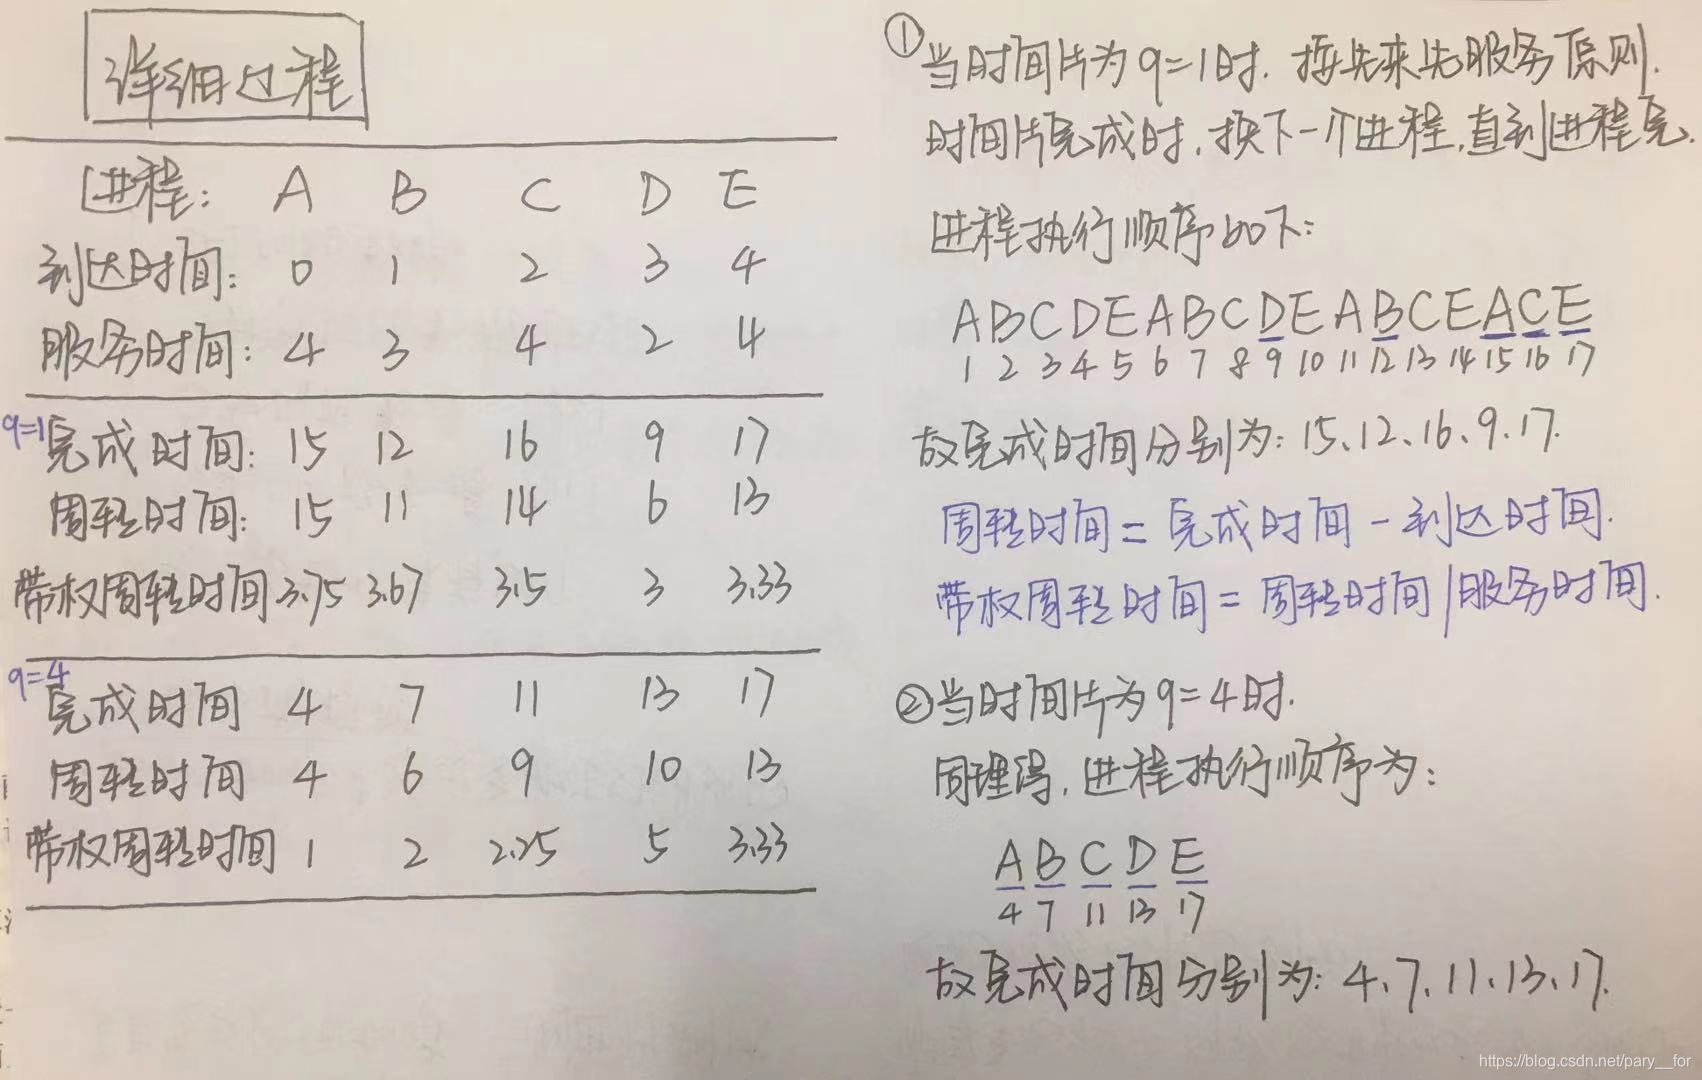 详细过程
进程: A B C D E
到达时间: 0 1 2 3 4
服务时间: 4 3 4 2 4
q=1
完成时间: 15 12 16 9 17
周转时间: 15 11 14 6 13
带权周转时间 3.75 3.67 3.5 3 3.33
q=4
完成时间 4 7 11 13 17
周转时间 4 6 9 10 13
带权周转时间 1 2 2.25 5 3.33
①当时间片为q=1时. 按先来先服务原则.
时间片完成时, 换下一个进程, 直到进程完.
进程执行顺序如下:
A B C D E A B C D E A B C E A C E
1 2 3 4 5 6 7 8 9 10 11 12 13 14 15 16 17
故完成时间分别为: 15、12、16、9、17.
周转时间 = 完成时间 - 到达时间.
带权周转时间 = 周转时间 / 服务时间.
②当时间片为q=4时.
同理得, 进程执行顺序为:
A B C D E
4 7 11 13 17
故完成时间分别为: 4、7、11、13、17.
https://blog.csdn.net/pary__for